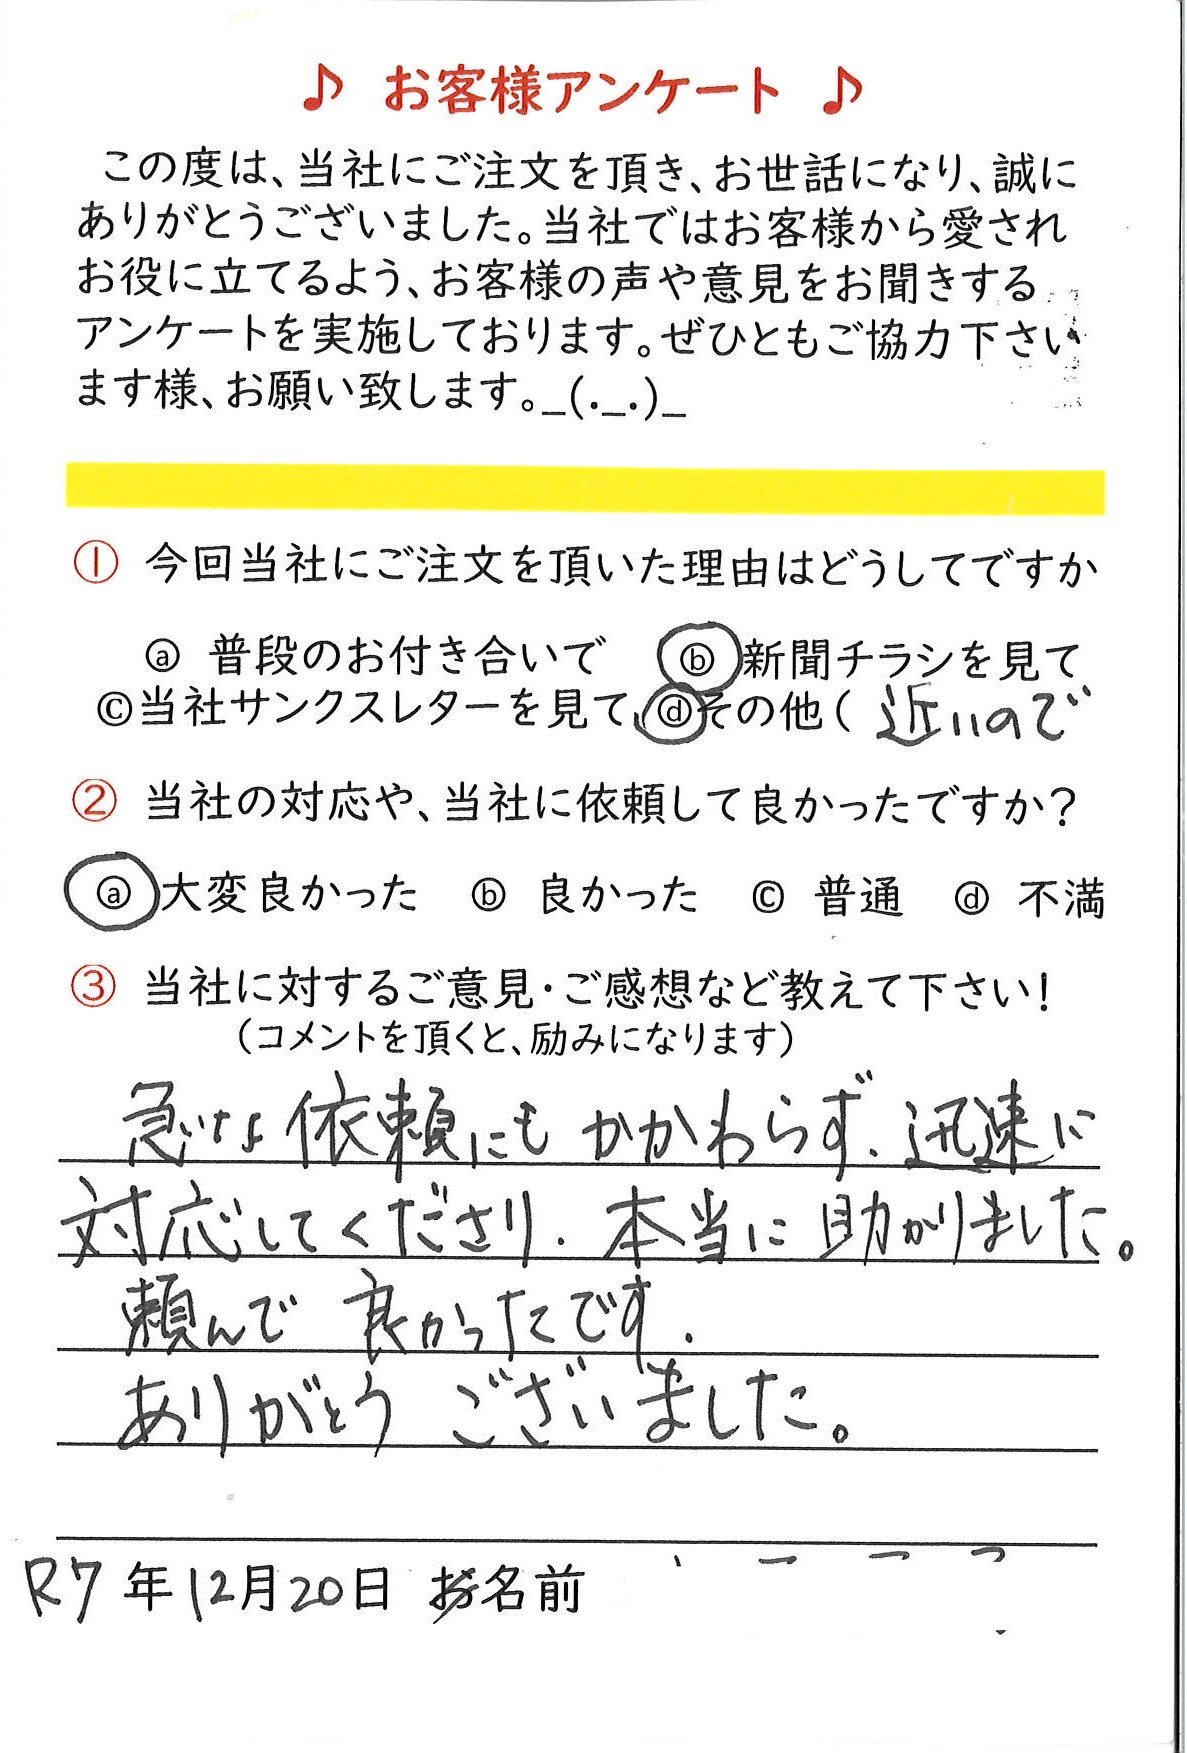 ♪ お客様アンケート ♪
この度は、当社にご注文を頂き、お世話になり、誠に
ありがとうございました。当社ではお客様から愛され
お役に立てるよう、お客様の声や意見をお聞きする
アンケートを実施しております。ぜひともご協力下さい
ます様、お願い致します。_(._.)_
① 今回当社にご注文を頂いた理由はどうしてですか
ⓐ 普段のお付き合いで ⓑ新聞チラシを見て
ⓒ当社サンクスレターを見て、ⓓその他( 近いので
② 当社の対応や、当社に依頼して良かったですか?
ⓐ 大変良かった ⓑ 良かった ⓒ 普通 ⓓ 不満
③ 当社に対するご意見・ご感想など教えて下さい!
(コメントを頂くと、励みになります)
急いな依頼にもかかわらず、迅速に
対応してくださり、本当に助かりました。
頼んで良かったです。
ありがとうございました。
R7年12月20日 お名前